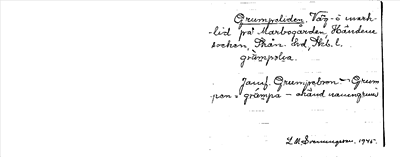 Grumpeliden, Väg- o mark-
-lid på Marbogården, Händene
socken, Skån. hd, Skb. l.
gråmpelia.
Jämf. Grumpebron - Grum
pan = gråmpa - okänd namngrund
L. M. Svenungsson, 1945.